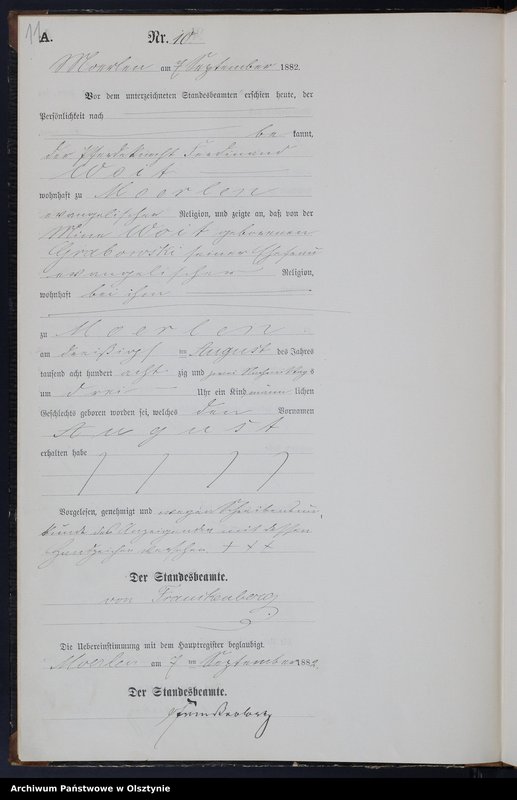 11
A.
Nr. 10
Moerlen am 7 September 1882.
Vor dem unterzeichneten Standesbeamten erschien heute, der
Persönlichkeit nach
be kannt,
der Pferdeknecht Ferdinand
Woit
wohnhaft zu Moerlen
evangelischer Religion, und zeigte an, daß von der
Mine Woit geborenen
Grabowski seiner Ehefrau
evangelischer Religion,
wohnhaft bei ihm
zu Moerlen
am dreißigst im August des Jahres
tausend acht hundert acht zig und zwei Nachmittags
um drei Uhr ein Kind männ lichen
Geschlechts geboren worden sei, welches den Vornamen
August
erhalten habe
Vorgelesen, genehmigt und wegen Schreibensun-
kunde des Anzeigenden mit dessen
Handzeichen versehen + + +
Der Standesbeamte.
von Franckenberg
Die Uebereinstimmung mit dem Hauptregister beglaubigt.
Moerlen am 7 ten September 1882
Der Standesbeamte.
Archiwum Państwowe w Olsztynie